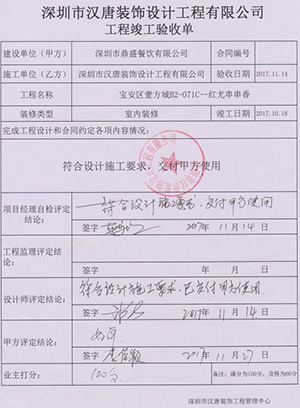 深圳市汉唐装饰设计工程有限公司
工程竣工验收单
建设单位（甲方） 深圳市鼎盛餐饮有限公司 合同编号
施工单位（乙方） 深圳市汉唐装饰设计工程有限公司 验收日期 2017.11.14
工程名称 宝安区壹方城B2-071C--红尤串串香
装修类型 室内装修 竣工日期 2017.10.18
完成工程设计和合同约定各项内容情况:
符合设计施工要求，交付甲方使用
项目经理自检评定结论: 符合设计施工要求，交付甲方使用
签字 2017年 11月 14日
工程监理评定结论:
签字 年 月 日
设计师评定结论: 符合设计施工要求.已交付甲方使用.
签字 2017年 11月 14日
甲方评定结论:
签字 2017年 11月 27日
业主打分: 100分 备注: 满分为100分，及格为60分
深圳市汉唐装饰工程管理中心